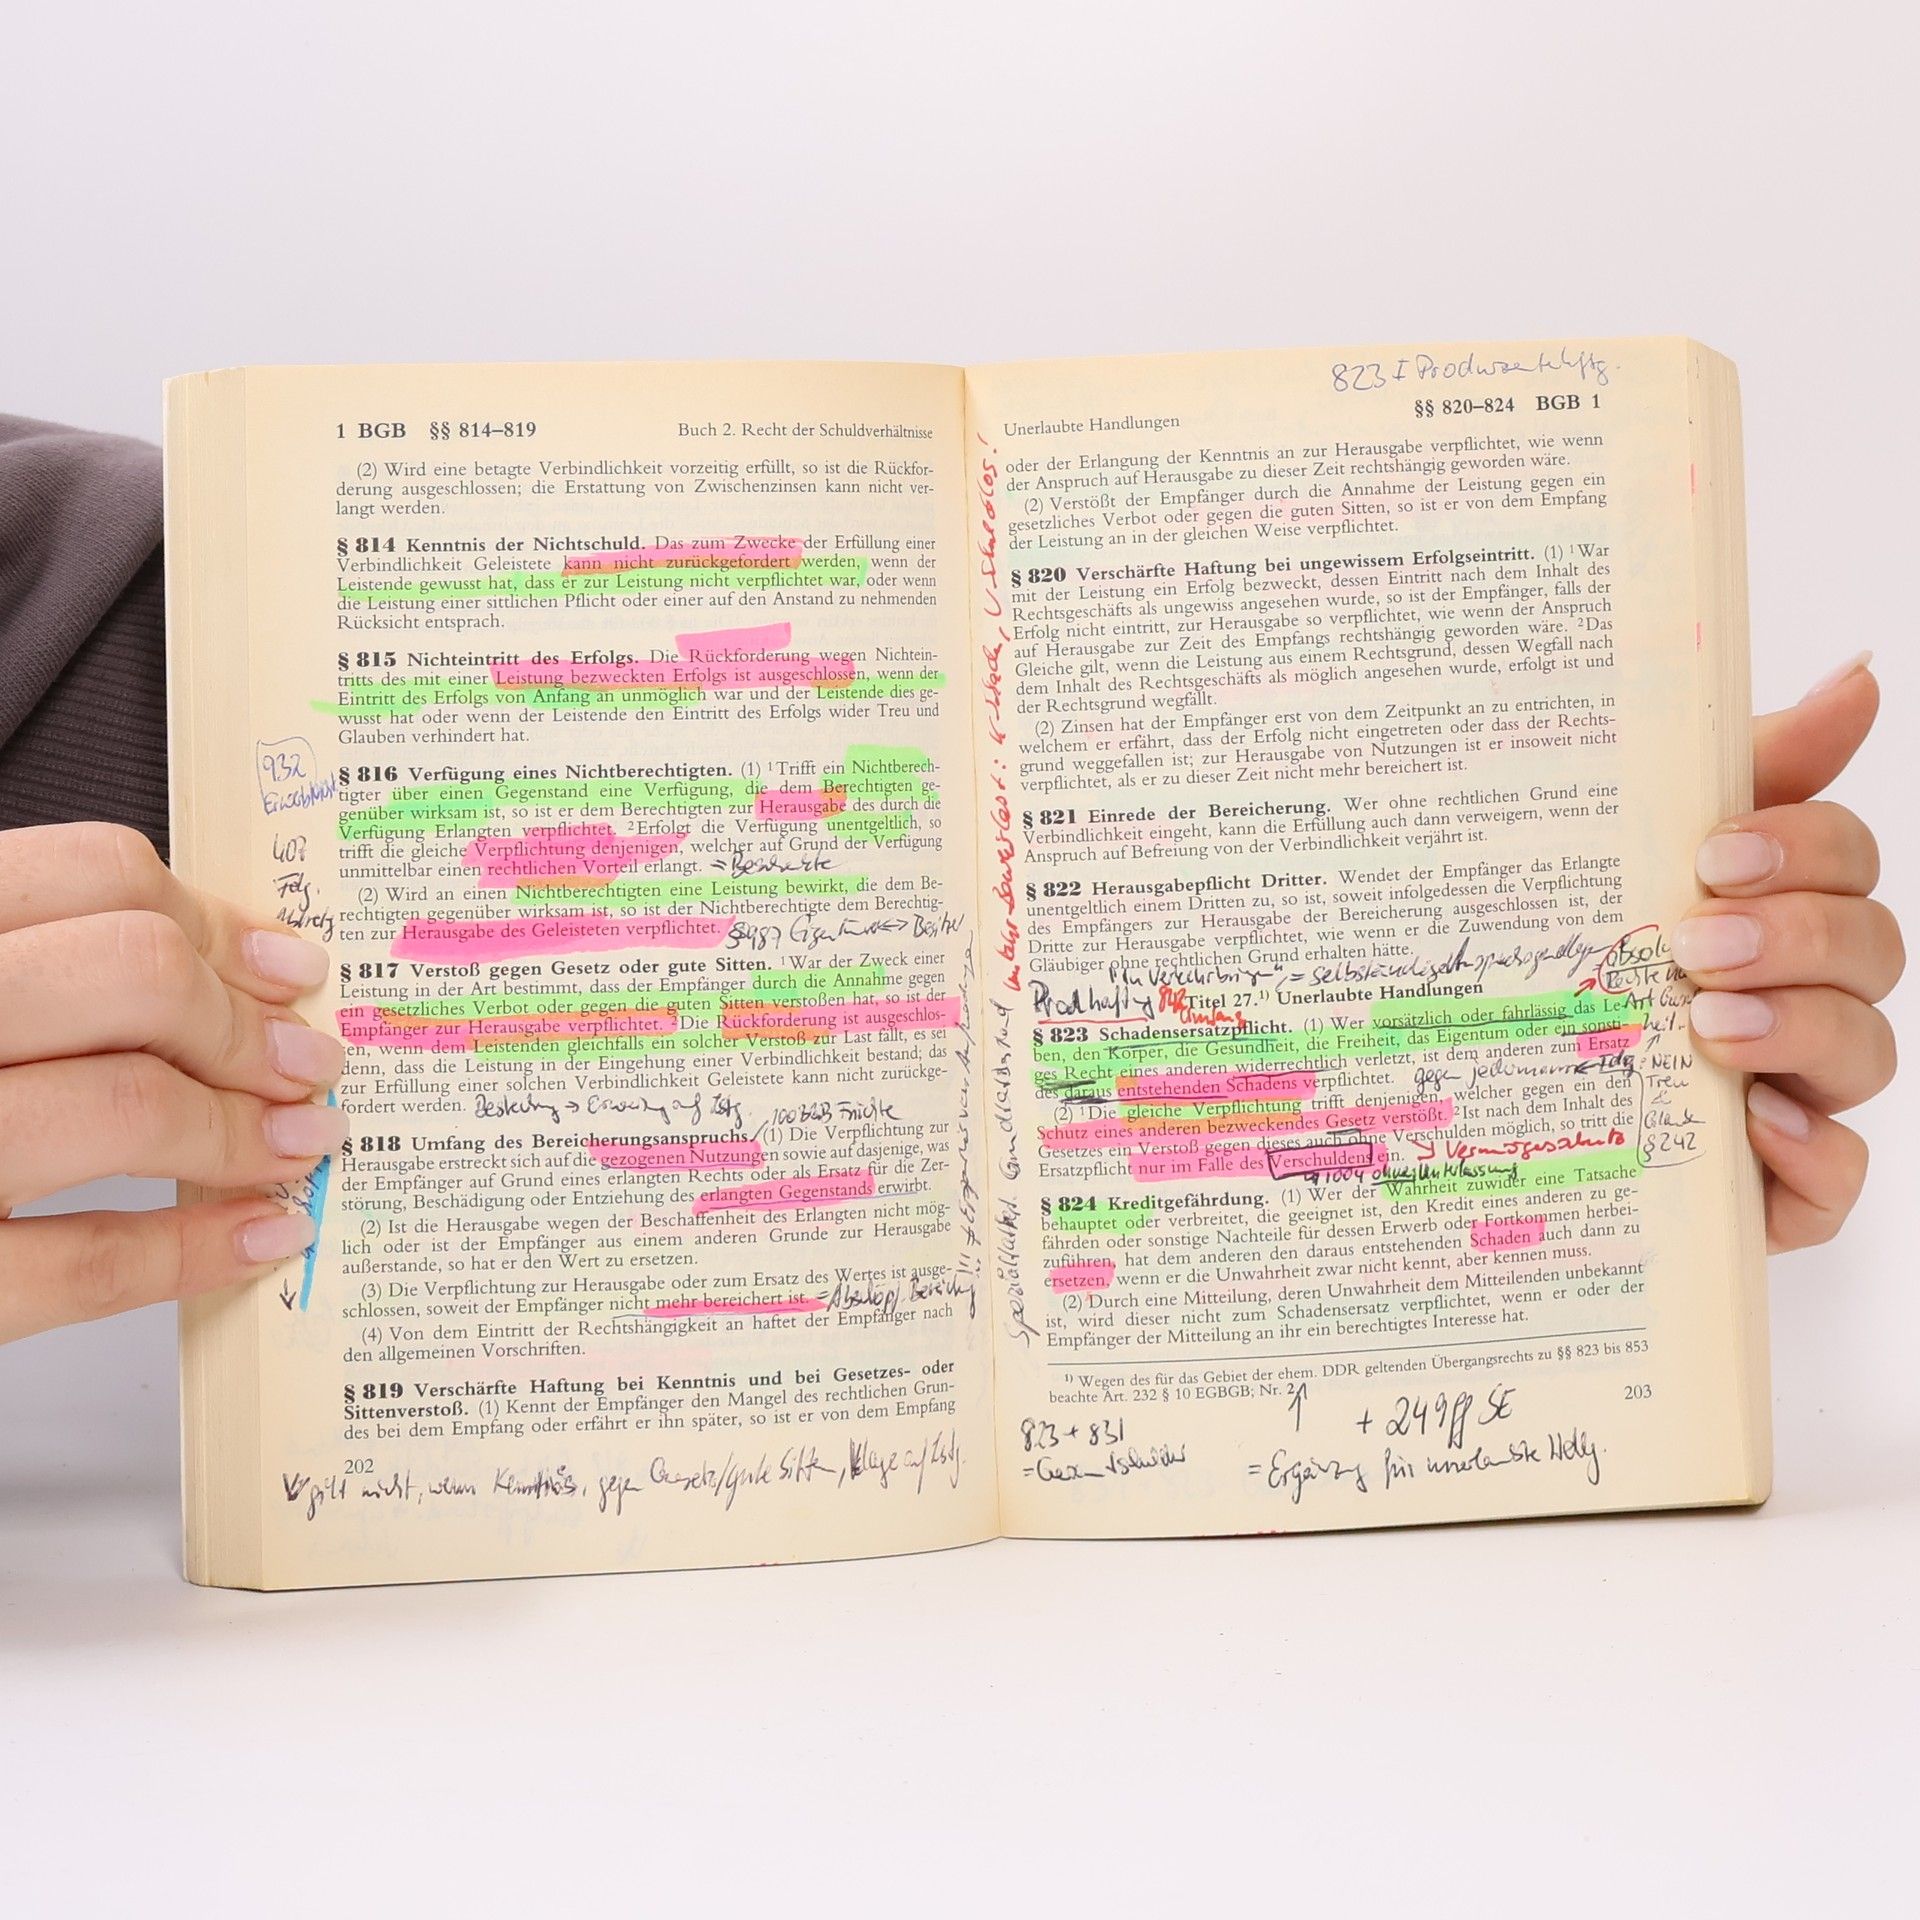 1 BGB §§ 814–819 Buch 2. Recht der Schuldverhältnisse
(2) Wird eine betagte Verbindlichkeit vorzeitig erfüllt, so ist die Rückfor-
derung ausgeschlossen; die Erstattung von Zwischenzinsen kann nicht ver-
langt werden.
§ 814 Kenntnis der Nichtschuld. Das zum Zwecke der Erfüllung einer
Verbindlichkeit Geleistete kann nicht zurückgefordert werden, wenn der
Leistende gewusst hat, dass er zur Leistung nicht verpflichtet war, oder wenn
die Leistung einer sittlichen Pflicht oder einer auf den Anstand zu nehmenden
Rücksicht entsprach.
§ 815 Nichteintritt des Erfolgs. Die Rückforderung wegen Nichtein-
tritts des mit einer Leistung bezweckten Erfolgs ist ausgeschlossen, wenn der
Eintritt des Erfolgs von Anfang an unmöglich war und der Leistende dies ge-
wusst hat oder wenn der Leistende den Eintritt des Erfolgs wider Treu und
Glauben verhindert hat.
932
§ 816 Verfügung eines Nichtberechtigten. (1) ¹Trifft ein Nichtberech-
tigter über einen Gegenstand eine Verfügung, die dem Berechtigten ge-
genüber wirksam ist, so ist er dem Berechtigten zur Herausgabe des durch die
Verfügung Erlangten verpflichtet. ²Erfolgt die Verfügung unentgeltlich, so
trifft die gleiche Verpflichtung denjenigen, welcher auf Grund der Verfügung
unmittelbar einen rechtlichen Vorteil erlangt. = Beschenkte
407
Fdg.
(2) Wird an einen Nichtberechtigten eine Leistung bewirkt, die dem Be-
rechtigten gegenüber wirksam ist, so ist der Nichtberechtigte dem Berechtig-
ten zur Herausgabe des Geleisteten verpflichtet. §987 Eigentümer <-> Besitzer
§ 817 Verstoß gegen Gesetz oder gute Sitten. ¹War der Zweck einer
Leistung in der Art bestimmt, dass der Empfänger durch die Annahme gegen
ein gesetzliches Verbot oder gegen die guten Sitten verstoßen hat, so ist der
Empfänger zur Herausgabe verpflichtet. ²Die Rückforderung ist ausgeschlos-
sen, wenn dem Leistenden gleichfalls ein solcher Verstoß zur Last fällt, es sei
denn, dass die Leistung in der Eingehung einer Verbindlichkeit bestand; das
zur Erfüllung einer solchen Verbindlichkeit Geleistete kann nicht zurückge-
fordert werden. Bestechung → auf
100 BGB Früchte
§ 818 Umfang des Bereicherungsanspruchs. (1) Die Verpflichtung zur
Herausgabe erstreckt sich auf die gezogenen Nutzungen sowie auf dasjenige, was
der Empfänger auf Grund eines erlangten Rechts oder als Ersatz für die Zer-
störung, Beschädigung oder Entziehung des erlangten Gegenstands erwirbt.
(2) Ist die Herausgabe wegen der Beschaffenheit des Erlangten nicht mög-
lich oder ist der Empfänger aus einem anderen Grunde zur Herausgabe
außerstande, so hat er den Wert zu ersetzen.
(3) Die Verpflichtung zur Herausgabe oder zum Ersatz des Wertes ist ausge-
schlossen, soweit der Empfänger nicht mehr bereichert ist.
(4) Von dem Eintritt der Rechtshängigkeit an haftet der Empfänger nach
den allgemeinen Vorschriften.
§ 819 Verschärfte Haftung bei Kenntnis und bei Gesetzes- oder
Sittenverstoß. (1) Kennt der Empfänger den Mangel des rechtlichen Grun-
des bei dem Empfang oder erfährt er ihn später, so ist er von dem Empfang
202
gilt nicht, wenn Kenntnis, gegen Gesetz/gute Sitten, Klage auf
823 I
Unerlaubte Handlungen §§ 820–824 BGB 1
oder der Erlangung der Kenntnis an zur Herausgabe verpflichtet, wie wenn
der Anspruch auf Herausgabe zu dieser Zeit rechtshängig geworden wäre.
(2) Verstößt der Empfänger durch die Annahme der Leistung gegen ein
gesetzliches Verbot oder gegen die guten Sitten, so ist er von dem Empfang
der Leistung an in der gleichen Weise verpflichtet.
§ 820 Verschärfte Haftung bei ungewissem Erfolgseintritt. (1) ¹War
mit der Leistung ein Erfolg bezweckt, dessen Eintritt nach dem Inhalt des
Rechtsgeschäfts als ungewiss angesehen wurde, so ist der Empfänger, falls der
Erfolg nicht eintritt, zur Herausgabe so verpflichtet, wie wenn der Anspruch
auf Herausgabe zur Zeit des Empfangs rechtshängig geworden wäre. ²Das
Gleiche gilt, wenn die Leistung aus einem Rechtsgrund, dessen Wegfall nach
dem Inhalt des Rechtsgeschäfts als möglich angesehen wurde, erfolgt ist und
der Rechtsgrund wegfällt.
(2) Zinsen hat der Empfänger erst von dem Zeitpunkt an zu entrichten, in
welchem er erfährt, dass der Erfolg nicht eingetreten oder dass der Rechts-
grund weggefallen ist; zur Herausgabe von Nutzungen ist er insoweit nicht
verpflichtet, als er zu dieser Zeit nicht mehr bereichert ist.
§ 821 Einrede der Bereicherung. Wer ohne rechtlichen Grund eine
Verbindlichkeit eingeht, kann die Erfüllung auch dann verweigern, wenn der
Anspruch auf Befreiung von der Verbindlichkeit verjährt ist.
§ 822 Herausgabepflicht Dritter. Wendet der Empfänger das Erlangte
unentgeltlich einem Dritten zu, so ist, soweit infolgedessen die Verpflichtung
des Empfängers zur Herausgabe der Bereicherung ausgeschlossen ist, der
Dritte zur Herausgabe verpflichtet, wie wenn er die Zuwendung von dem
Gläubiger ohne rechtlichen Grund erhalten hätte.
"In Verkehrbringen" = selbständige Anspruchsgrundlage
Prodhaftung
Titel 27.¹⁾ Unerlaubte Handlungen
§ 823 Schadensersatzpflicht. (1) Wer vorsätzlich oder fahrlässig das Le-
ben, den Körper, die Gesundheit, die Freiheit, das Eigentum oder ein sonsti-
ges Recht eines anderen widerrechtlich verletzt, ist dem anderen zum Ersatz
des daraus entstehenden Schadens verpflichtet. gegen jedermann ← Fdg: NEIN
(2) ¹Die gleiche Verpflichtung trifft denjenigen, welcher gegen ein den
Schutz eines anderen bezweckendes Gesetz verstößt. ²Ist nach dem Inhalt des
Gesetzes ein Verstoß gegen dieses auch ohne Verschulden möglich, so tritt die
Ersatzpflicht nur im Falle des Verschuldens ein. → Vermögensschutz
Treu
&
Glauben
§ 242
→ 1004 Unterlassung
§ 824 Kreditgefährdung. (1) Wer der Wahrheit zuwider eine Tatsache
behauptet oder verbreitet, die geeignet ist, den Kredit eines anderen zu ge-
fährden oder sonstige Nachteile für dessen Erwerb oder Fortkommen herbei-
zuführen, hat dem anderen den daraus entstehenden Schaden auch dann zu
ersetzen, wenn er die Unwahrheit zwar nicht kennt, aber kennen muss.
(2) Durch eine Mitteilung, deren Unwahrheit dem Mitteilenden unbekannt
ist, wird dieser nicht zum Schadensersatz verpflichtet, wenn er oder der
Empfänger der Mitteilung an ihr ein berechtigtes Interesse hat.
¹⁾ Wegen des für das Gebiet der ehem. DDR geltenden Übergangsrechts zu §§ 823 bis 853
beachte Art. 232 § 10 EGBGB; Nr. 2.
203
823 + 831
+ 249 ff SE
= Ergänzung für unerlaubte Hdlg.